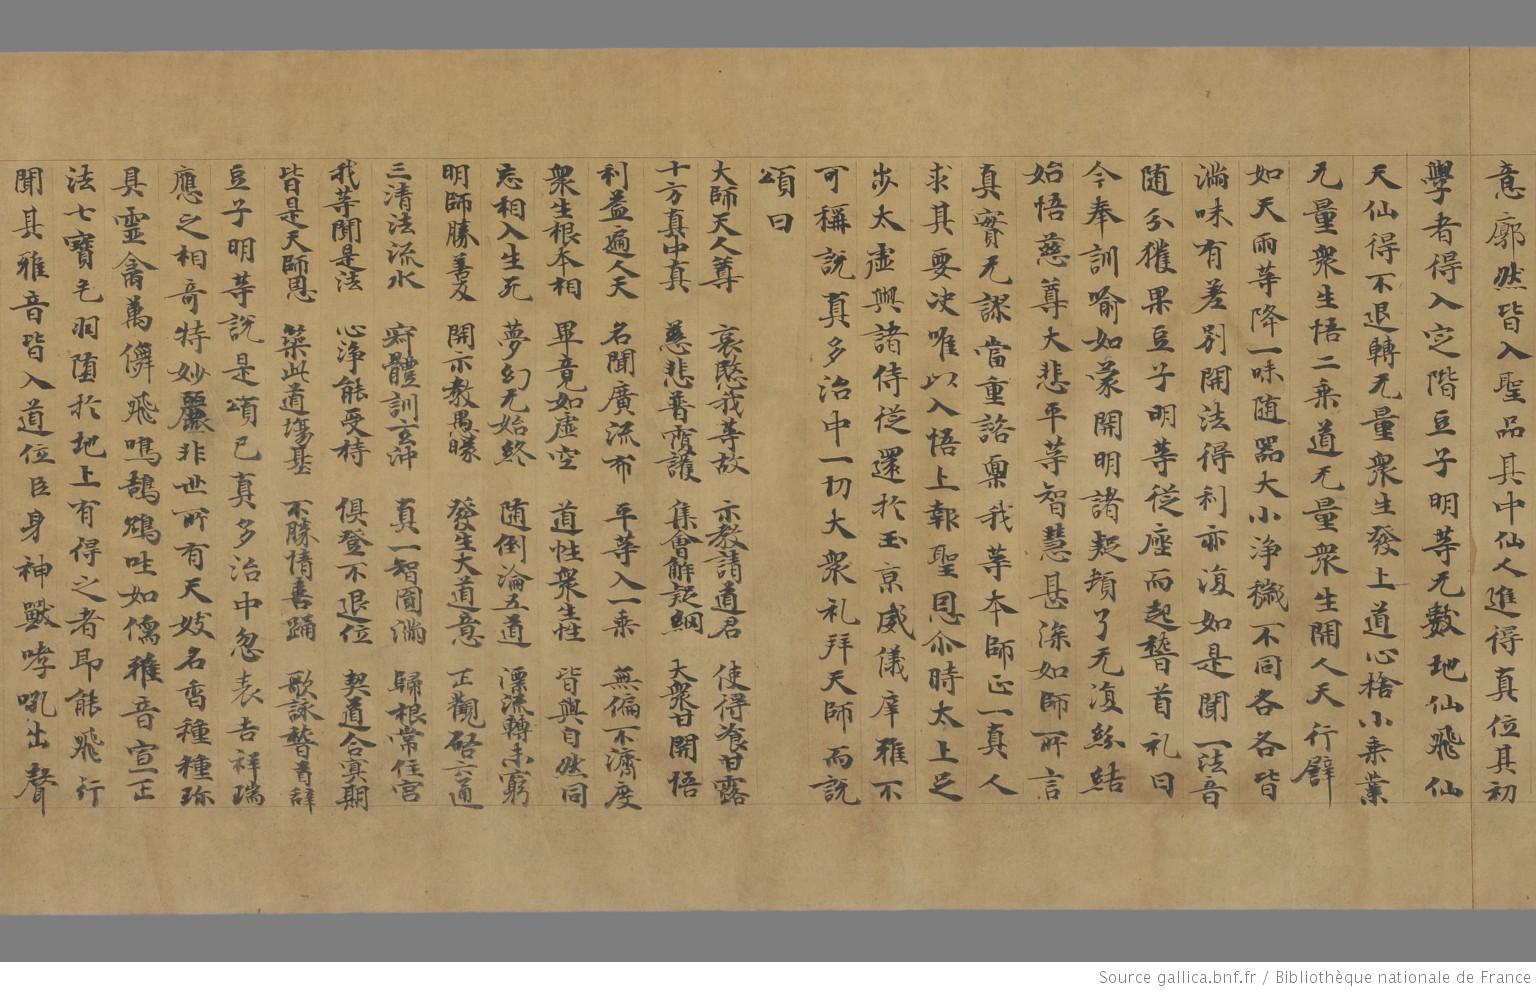 意廓然皆入聖品其中仙人進得真位其初
學者得入定階豆子明等无數地仙飛仙
天仙得不退轉无量衆生發上道心捨小乘業
无量衆生悟二乘道无量衆生開人天行譬
如天雨等降一味随器大小淨穢不同各各皆
滿味有差別開法得利亦復如是聞一法音
随分獲果豆子明等從座而起稽首礼曰
今奉訓喻如蒙開明諸疑頓了无復紛結
始悟慈尊大悲平等智慧甚深如師所言
真實无謬當重諮稟我等本師正一真人
求其要决唯以入悟上報聖恩尒時太上足
步太虛與諸侍從還於玉京威儀庠雅不
可稱說真多治中一切大衆礼拜天師而說
頌曰
大師天人尊 哀愍我等故 示教請道君 使得飡甘露
十方真中真 慈悲普覆護 集會解疑網 大衆甘開悟
利益遍人天 名聞廣流布 平等入一乘 無偏不濟度
衆生根本相 畢竟如虛空 道性衆生性 皆與自然同
忘相入生死 夢幻无始終 随倒淪五道 漂流轉未窮
明師勝善友 開示教愚矇 發生大道意 正觀啓六通
三清法流水 寂體訓玄沖 真一智圓滿 歸根常住宮
我等聞是法 心淨能受持 俱登不退位 契道合寘期
皆是天師恩 築此道場基 不勝情善踊 歌詠稽首辭
豆子明等說是頌已真多治中忽表吉祥瑞
應之相奇特妙麗非世所有天妓名香種種珎
具靈禽萬儛飛鳴鵠鵄哇如儒雅音宣正
法七寶毛羽堕於地上有得之者即能飛行
聞其雅音皆入道位臣身神獸哮吼出聲
Source gallica.bnf.fr / Bibliothèque nationale de France